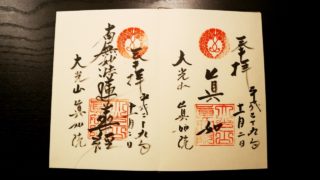 奉拝
平成二十九年
十一月二日
眞如
大光山 眞如院
奉拝
平成二十九年
十一月二日
南無妙法蓮華経
大光山 眞如院